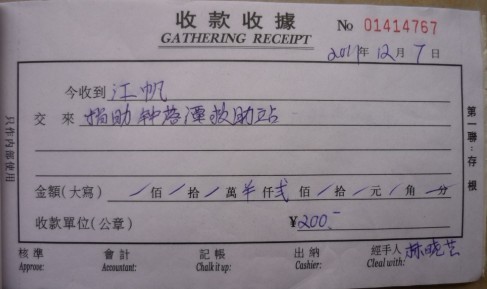 收款收據
GATHERING RECEIPT
No 01414767
2011年12月7日
今收到江帆
交來 捐助钟落潭救助站
金額(大寫) / 佰 / 拾 / 萬 / 仟 弍 佰 / 拾 / 元 / 角 一 分
收款單位(公章) ¥200.-
核準 會計 記帳 出納 經手人 林晓芸
Approve: Accountant: Chalk it up: Cashier: Cleal with:
第一聯:存根
只作内部使用